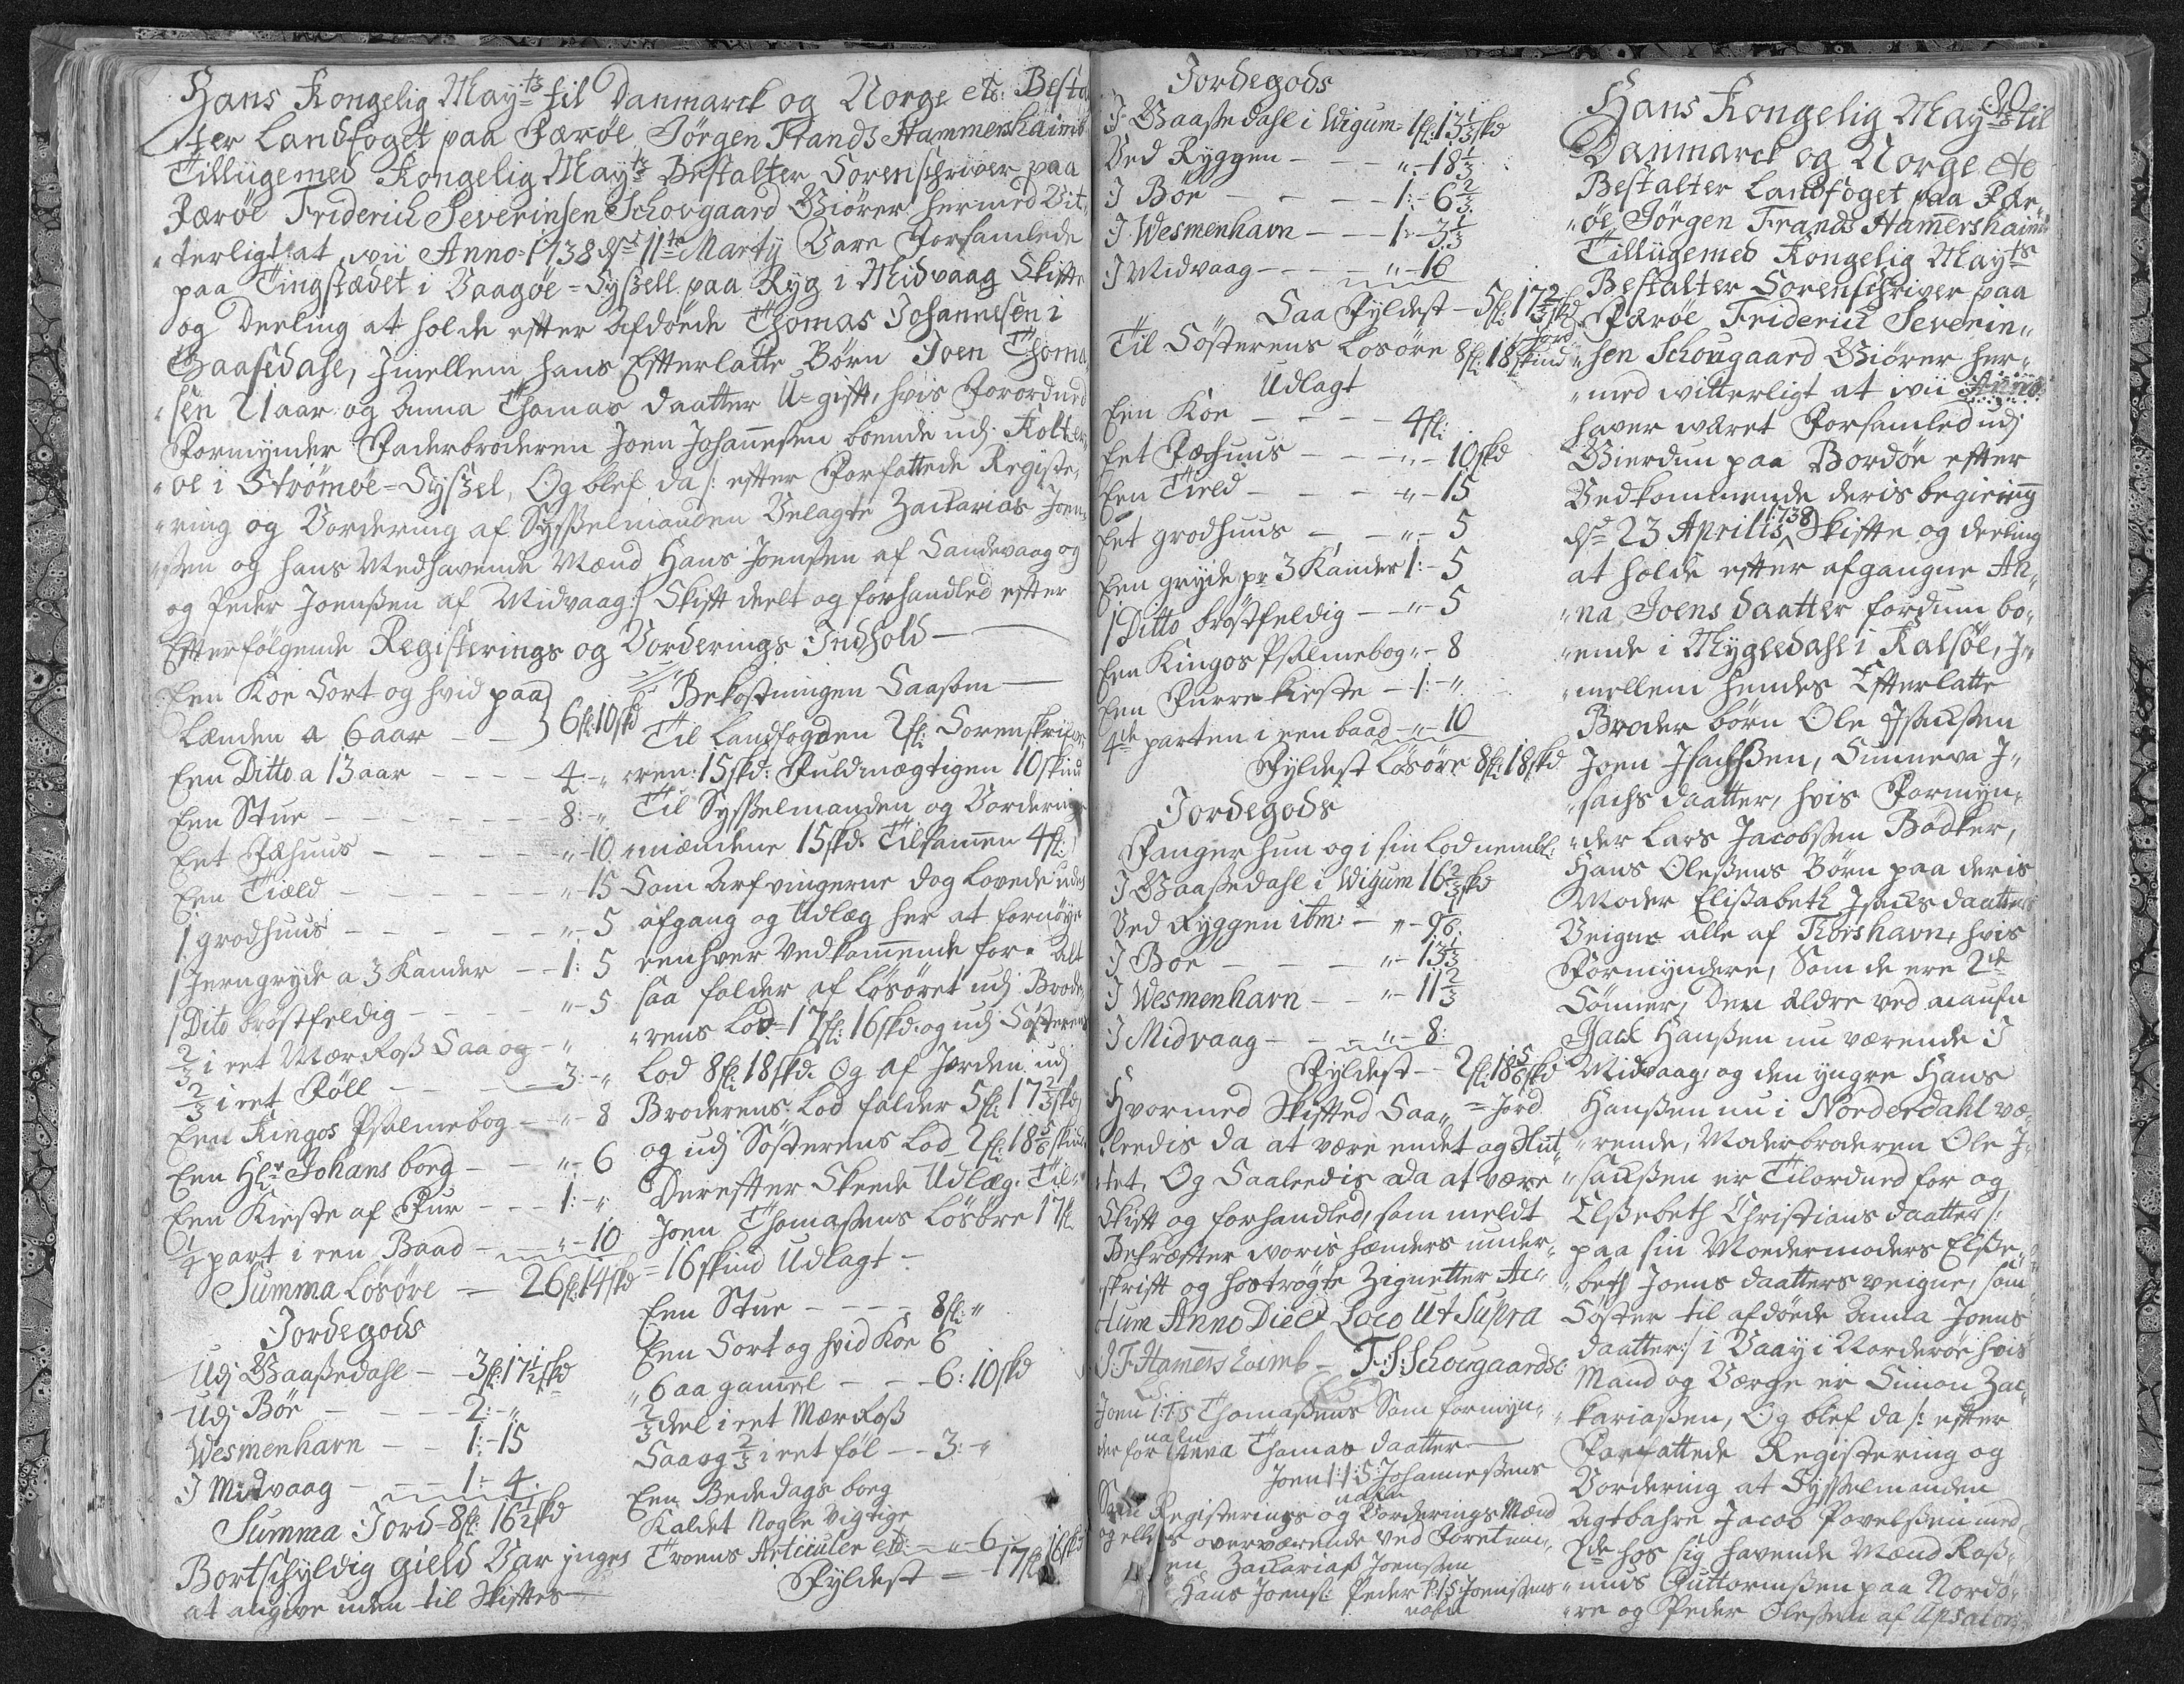 Hans Kongelig Mayts til Danmarck og Norge etc: Besta
ter Landfoget paa Færøe Jörgen Frands Hammershaimb
Tillügemed Kongelig Mayts Bestalter Sorenschriver paa
Færøe Friderich Severinsen Schougaard Giører hermed Vit,,
,,terligt at wii Anno 1738 dend 11te Martij Vare Forsamlede
paa Tingstædet i Vaagöe=Sysзell paa Ryg i Midvaag Skifte
og Deeling at holde efter Afdöde Thomas Johannesen i
Gaasedahl, Imellem hans Efterlatte Börn Joen Thoma
,,sen 21 aar og Anna Thomas daatter U=gift, hvis Forordned
Formynder Faderbroderen Joen Johannesen boende udj Kolter
,,öe i Strömöe=Sysзel, Og blef da /: efter Forfattede Registe,,
,,ring og Vordering af Sysselmanden Velagte Zacharias Joen,,
,,sen og hans Medhavende Mænd Hans Joensen af Sandevaag og
og Peder Joensen af Midvaag :/ Skift deelt og forhandled efter
Efterfölgende Registerings og Vorderings Indhold —
Een Koe Sort og hvid paa
Lænden a 6 aar — 6 fl: 10 skd
Een Ditto a 13 aar - - - - 4: - "
Een Stue - - - - - 8: - "
Eet Fæhuus - - - - - " - 10
Een Tield - - - - - " - 15
1 grodhuus - - - - - " - 5
1 Jerngryde a 3 Kander - - 1: 5
1 Dito bröstfeldig - - - - " - 5
2/3 i eet Mær Ross Saa og - "
2/3 i eet Föll - - - - 3: - "
Een Kingos Psalmebog - - " - 8
Een Hl: Johans bog - - " - 6
Een Kieste af Fur - - - 1: - "
1/4 part i een Baad - - " - 10
Summa Lösöre — 26 fl: 14 skd
Jordegods
Udj Gaasedahl - - 3 fl: 17 1/2 skd
Udj Böe - - - 2: - "
Wesmenhavn - - 1: - 15
I Midvaag - - - 1 - 4
Summa Jord = 8 fl: 16 1/2 skd
Bortschyldig gield Var ingen
at angive uden til Skiftes
Bekostningen Saasom —
Til Landfogden 2 fl: Sorenskrive,,
,,ren: 15 skd: Fuldmægtigen 10 skind
Til Sysselmanden og Vordering
mændene 15 skd. Tilsamen 4 fl:
Som Arfvingerne dog Lovede uden
afgang og Udlæg her at fornöye
eenhver Vedkommende for. Alt
saa falder af Lösöret udj Brode,,
,,rens Lod = 17 fl: 16 skd: og udj Söster ens
Lod 8 fl: 18 skd: Og af Jorden udj
Broderens Lod falder 5 fl: 17 2/3 skd
og udj Sösterens Lod 2 fl: 18 5/6 skind
Derefter Skeede Udlæg: Til
Joen Thomasens Lösöre 17 fl
= 16 skind Udlagt -
Een Stue - - - - 8 fl: "
Een Sort og hvid Koe 6
,,6 aar gammel - - - 6: 10 skd
2/3 deel i eet Mær Ross
Saa og 2/3 i eet föl - - 3: - "
Een Bededags bog
Kaldet Nogle vigtige
Troens Articuler etc: - " - 6
Fyldest = 17 fl 16 skd
Jordegods
I Gaasedahl i Wigum = 1 fl: 13 1/3 skd
Ved Ryggen - - - " - 18 1/3
I Böe - - - - 1: - 6 2/3
I Wesmenhavn - - 1 - 3 1/3
I Midvaag - - - " - 16
Saa Fyldest - 5 fl: 17 2/3 skd Jord
Til Sösterens Lösöre 8 fl: 18 skind
Udlagt
Een Koe - - - - 4 fl:
Eet Fæhuus - - - " - 10 skd
Een Tield - - - " - 15
Eet grodhuus - - - " - 5
Een gryde pr 3 Kander 1: - 5
1 Ditto bröstfeldig - - " - 5
Een Kingos Psalmebog " - 8
Een Furre Kieste - 1: - "
4de parten i een baad - " - 10
Fyldest Lösöre 8 fl: 18 skd
Jordegods
Fanger hun og i sin Lod nembl:
I Gaasedahl i Wigum 16 2/3 skd
Ved Ryggen itm: - " - 9 1/6
I Böe - - - " - 13 1/3
I Wesmenhavn - - " - 11 2/3
I Midvaag - - - " - 8:
Fyldest - 2 fl: 18 5/6 skd
= Jord
Hvormed Skifted Saa,,
,,leedis da at være endet og Slut,,
,,tet, Og Saaleedis da at være
Skift og forhandled, som meldt
Bekræfter voris hænders under,,
skrift og hoströgte Zignetter Ac,,
,,tum Anno Die et Loco Ut Supra
J: F Hamershaimb - F: S: Schougaard
Joen I: T: S Thomasens Som formyn,,
nafn
der for Anna Thomas daatter —
Joen I: I: S: Johannesens
nafn
Som Registerings og Vorderings Mænd
og ellers overværende ved Foretnin,,
en Zacharias Joensen
Hans Joens: Peder P: I: S: Joensens
nafn
80
Hans Kongelig Mayts til
Danmarck og Norge etc
Bestalter Landfoget paa Fær
,,öe Jörgen Frands Hamershaimb
Tillügemed Kongelig Mayts
Bestalter Sorenschriver paa
Færöe Friderich Severin,,
,,sen Schougaard Giører her,,
,,med witterligt at wii Anno
haver wæret Forsamled udj
Gierdum paa Bordöe efter
Vedkommende deris begiering
dend 23 Aprilis 1738 Skifte og deeling
at holde efter afgangne An,,
,,na Joens daatter fordum bo,,
,,ende i Mygledahl i Kalsöe, I,,
,,mellem hendes Efterlatte
Broder börn Ole Isachsen
Joen Isachsen, Sunneva I,,
,,sachs daatter, hvis Formyn,,
,,der Lars Jacobsen Bödker,
Hans Olesens Börn paa deris
Moder Elisabeth Isachs daatters
Veigne alle af Thorshavn, hvis
Formyndere, Som de ere 2de
Sönner, Den Eldre ved naufn
Jack Hansen nu værende I
Midvaag, og den yngre Hans
Hansen nu i Norderdahl væ,,
,,rende, Moderbroderen Ole I,,
,,sachsen er Tilordned for og
Elsebeth Christians daatter /:
paa sin Moedermoders Else,,
,,beth Joens daatters veigne, som
Söster til afdöde Anna Joens
daatter :/ i Vaay i Norderöe hvis
Mand og Værge er Simon Zac,,
,,kariasen, Og blef da /: efter
Forfattede Registering og
Vordering at Sysselmanden
Agtbahre Jacob Povelsen med
2de hos sig havende Mænd Ras,,
,,mus Guttormsen paa Nordö,,
,,re og Peder Olesen af